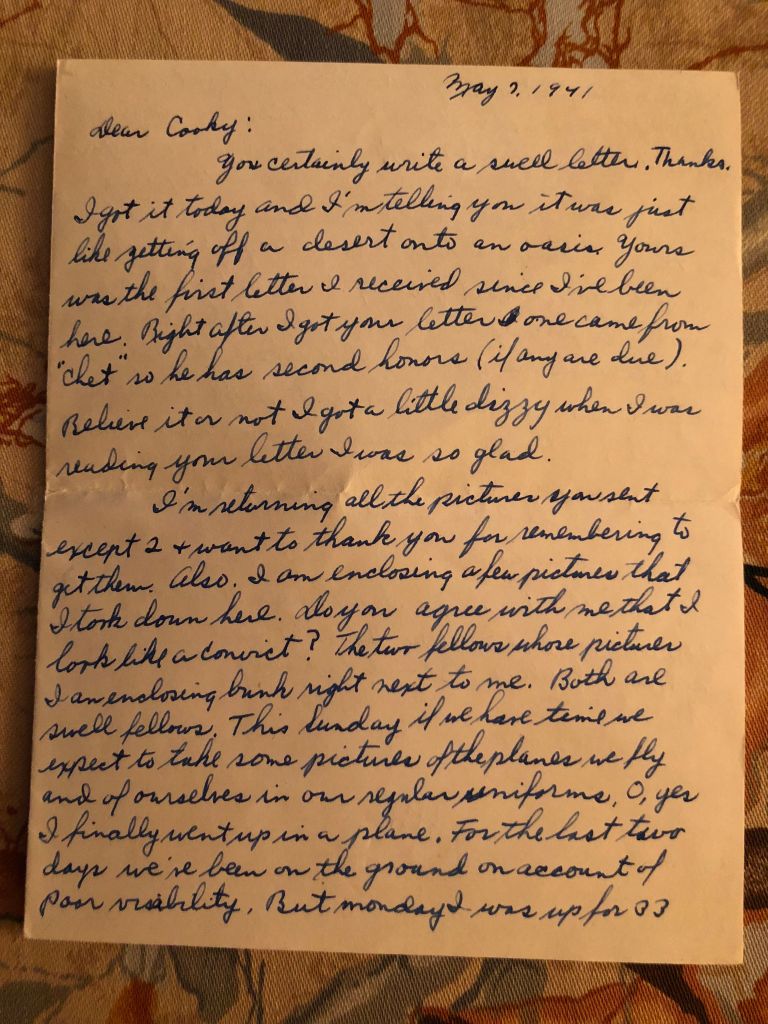 May 7, 1941
Dear Cooky:
You certainly write a swell letter. Thanks.
I got it today and I'm telling you it was just
like getting off a desert onto an oasis. Yours
was the first letter I received since I've been
here. Right after I got your letter one came from
"Chet" so he has second honors (if any are due).
Believe it or not I got a little dizzy when I was
reading your letter I was so glad.
I'm returning all the pictures you sent
except 2 + want to thank you for remembering to
get them. Also. I am enclosing a few pictures that
I took down here. Do you agree with me that I
look like a convict? The two fellows whose pictures
I am enclosing bunk right next to me. Both are
swell fellows. This Sunday if we have time we
expect to take some pictures of the planes we fly
and of ourselves in our regular uniforms. O, yes
I finally went up in a plane. For the last two
days we've been on the ground on account of
poor visibility. But monday I was up for 33